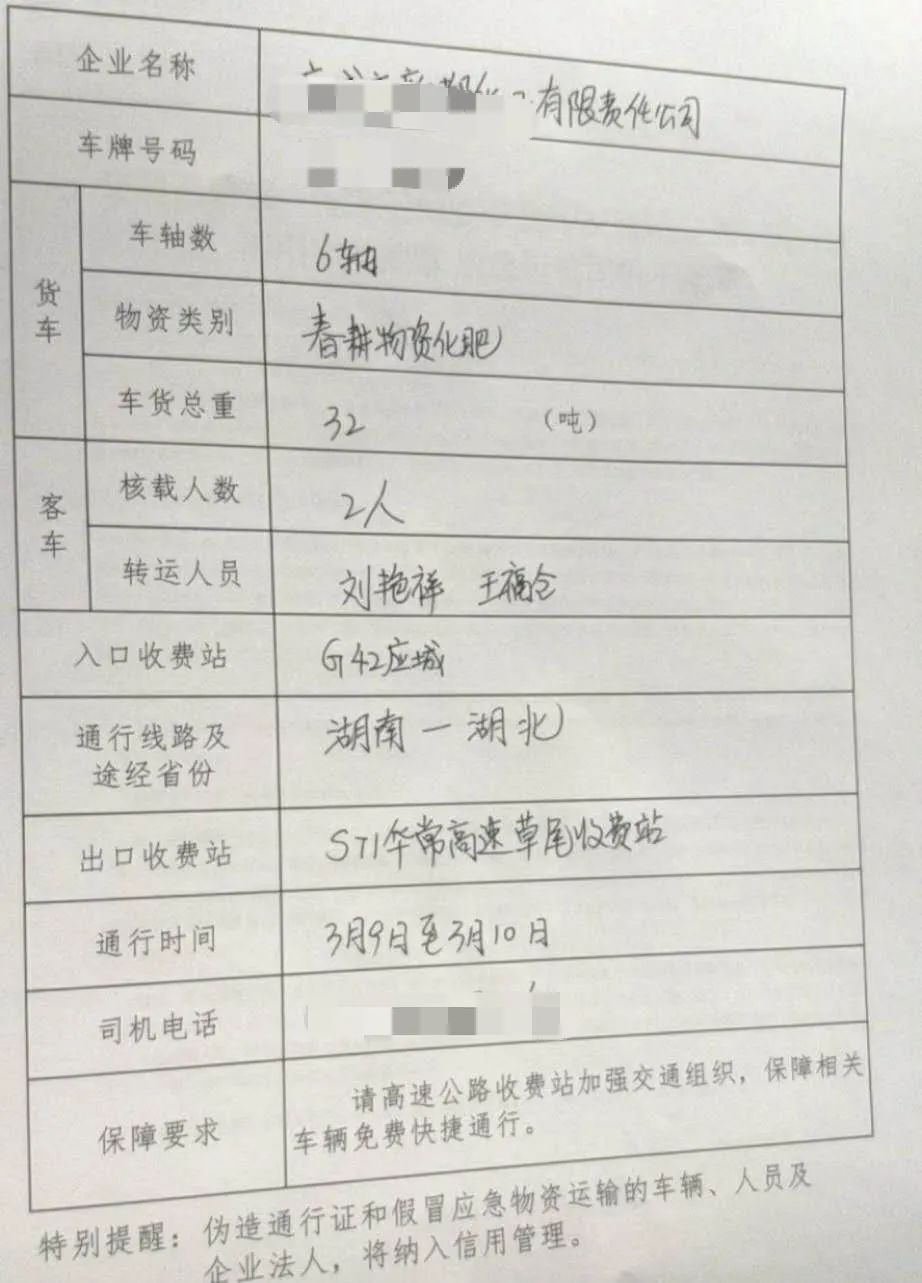 企业名称 有限责任公司
车牌号码
货车
车轴数 6轴
物资类别 春耕物资化肥
车货总重 32 （吨）
客车
核载人数 2人
转运人员 刘艳祥 王福仓
入口收费站 G42应城
通行线路及
途经省份
湖南一湖北
出口收费站 S71华常高速草尾收费站
通行时间 3月9日至3月10日
司机电话
保障要求
请高速公路收费站加强交通组织，保障相关
车辆免费快捷通行。
特别提醒：伪造通行证和假冒应急物资运输的车辆、人员及
企业法人，将纳入信用管理。